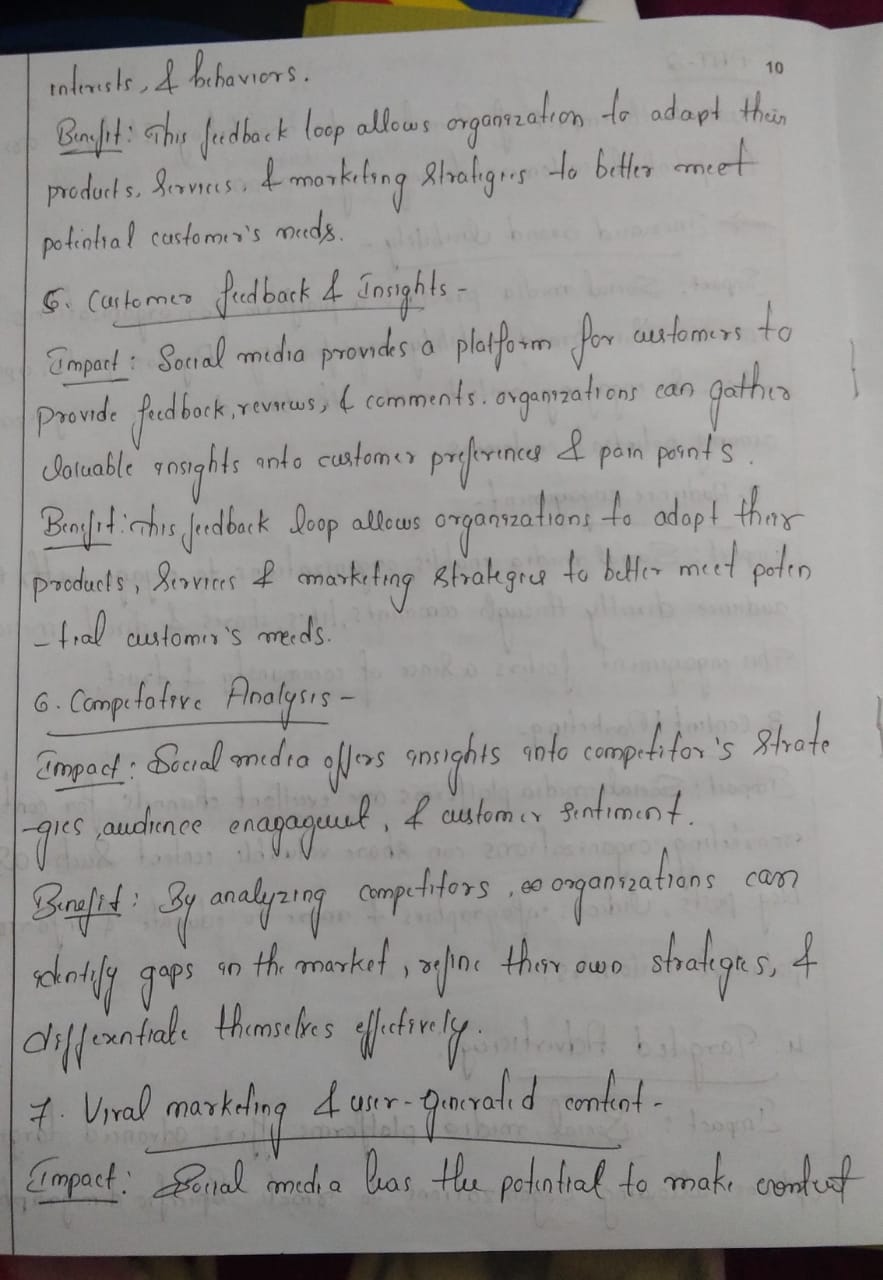 10
interests, & behaviors.
Benefit: This feedback loop allows organization to adapt their
products, Services, & marketing Strategies to better meet
potential customer's needs.
5. Customer feedback & Insights -
Impact: Social media provides a platform for customers to
provide feedback, reviews, & comments. organizations can gather
Valuable insights into customer preferences & pain points.
Benefit: This feedback loop allows organizations to adapt their
products, Services & marketing Strategies to better meet poten
-tial customer's needs.
6. Competative Analysis -
Impact: Social media offers insights into competitor's Strate
-gies, audience enagagement, & customer Sentiment.
Benefit: By analyzing competitors, organizations can
identify gaps in the market, refine their own strategies, &
differentiate themselves effectively.
7. Viral marketing & user-generated content -
Impact: Social media has the potential to make content